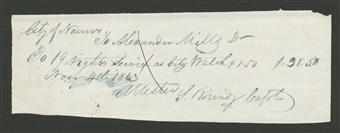 City of Nauvoo
To Alexander Mills Dr
To 19 Nights Service as City Watch $1.50 $28.50
Nov 4th 1843
Attest S. Roundy Capt